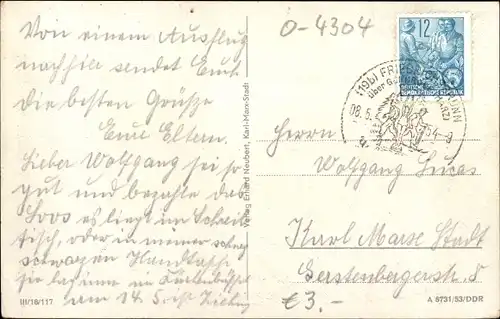 Von einem Ausflug
nach hier sendet Euch
die besten Grüße
Eure Eltern.
Lieber Wolfgang sei so
gut und bezahle das
Loos es liegt im Schreib
tisch, oder in meiner
schwarzen Handtasche
sie lag im
am 14. 5. ist
III/18/117
Verlag Erhard Neubert, Karl-Marx-Stadt
O-4304
12
DEUTSCHE
DEMOKRATISCHE REPUBLIK
(10b) FRIE
über
08.5. 54-9
Herrn
Wolfgang Lucas
Karl Marse Stadt
Gerstenbergerstr. 8
€3,-
A 8731/53/DDR